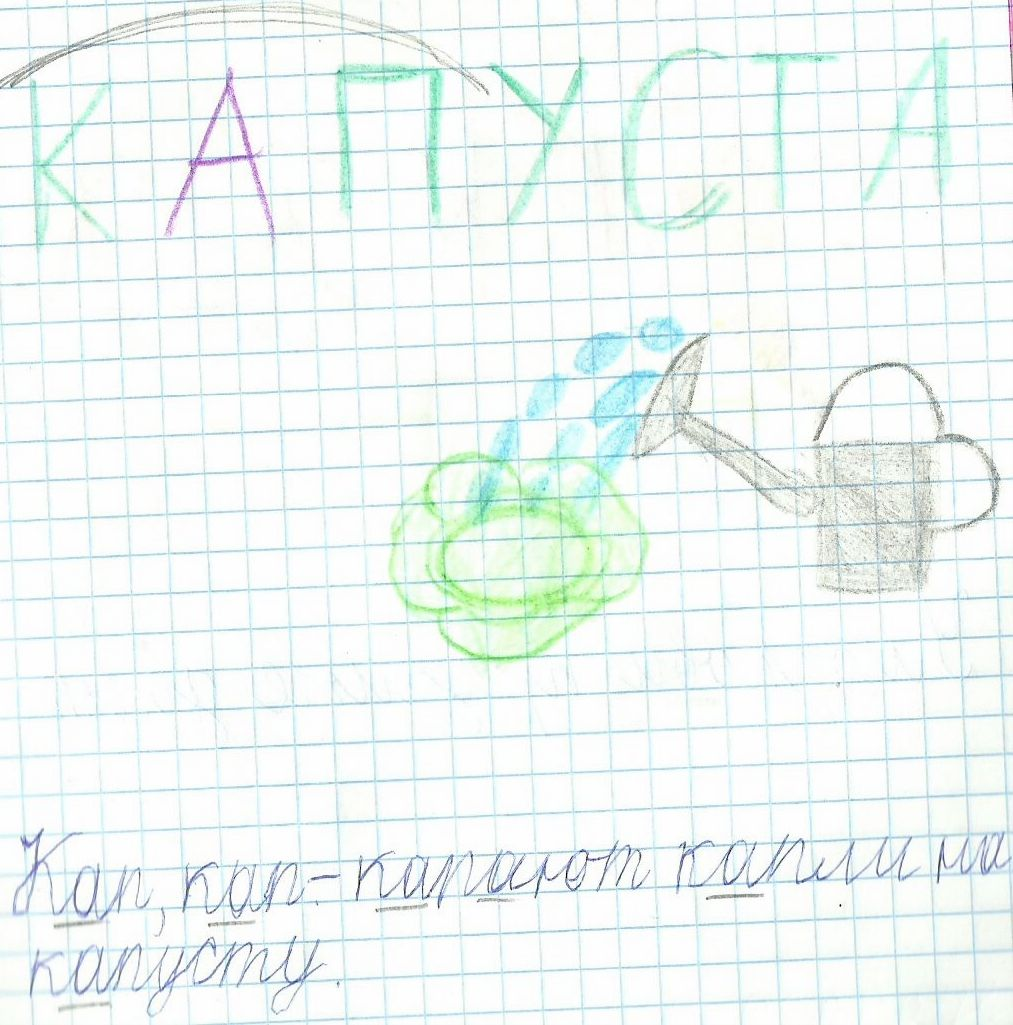 КАПУСТА
Кап, кап - капают капли на
капусту.